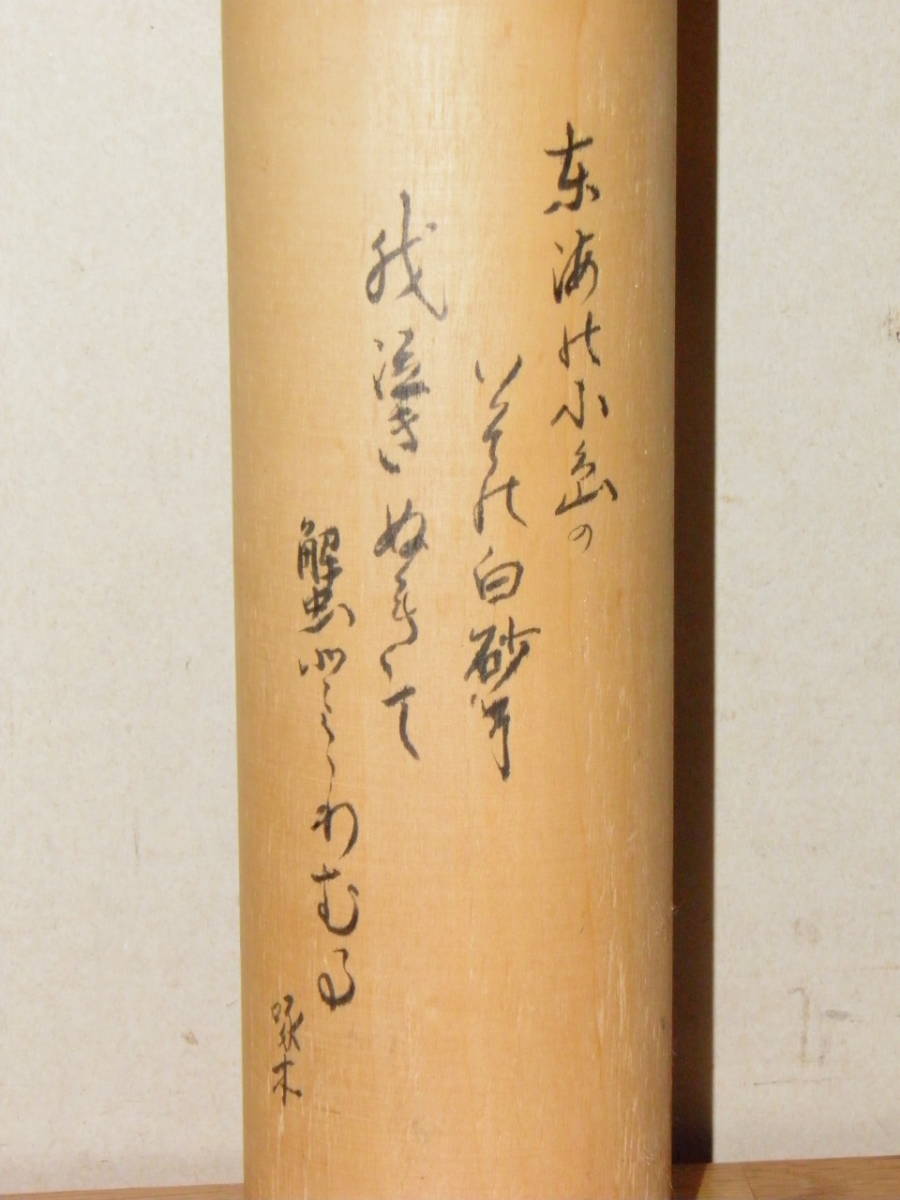 東海の小島の
いその白砂に
我泣きぬれて
蟹とたわむる
啄木